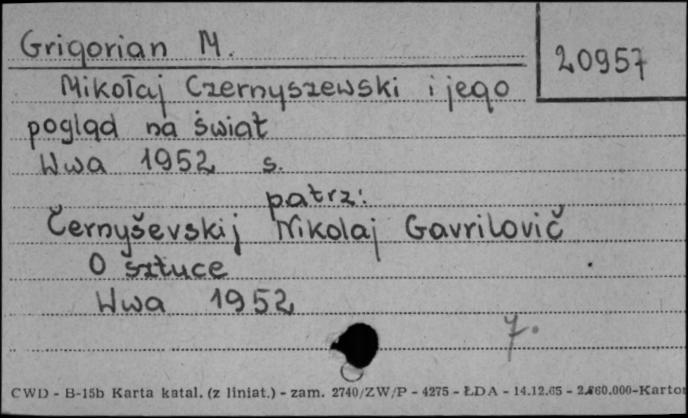 Grigorian M.
20957
Mikołaj Czernyszewski i jego
pogląd na świat
Wwa 1952 s.
patrz:
Černyševskij Nikolaj Gavrilovič
O sztuce
Wwa 1952
7.
CWD - B-15b Karta katal. (z liniat.) - zam. 2740/ZW/P - 4275 - ŁDA - 14.12.65 - 2.860.000-Karton